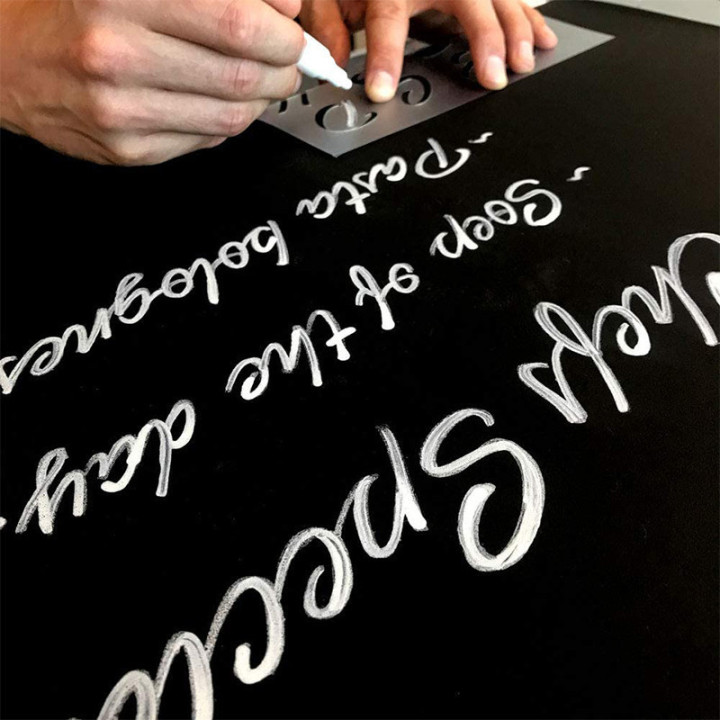 Chefs Specia
~ Soep of the day
~ Pasta bolognes